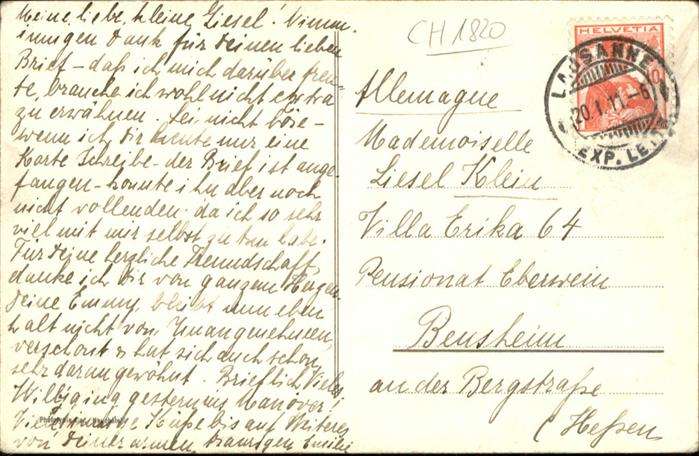 Meine liebe, kleine Liesel! Nimm
innigen Dank für Deinen lieben
Brief – daß ich mich darüber freu-
te, brauche ich wohl nicht extra
zu erwähnen. Sei nicht böse –
wenn ich Dir heute nur eine
Karte schreibe – der Brief ist ange-
fangen – konnte ihn aber noch
nicht vollenden da ich so sehr
viel mit mir selbst zu tun habe.
Für Deine herzliche Freundschaft,
danke ich Dir von ganzem Herzen.
Deine Emmy, bleibt nun eben
halt nicht von Unangenehmem,
verschont & hat sich auch schon
sehr daran gewöhnt. Brieflich Vieles
gestern aus Hanover!
Küsse bis auf Weiteres
von Deiner armen, traurigen
CH 1820
HELVETIA
10
LAUSANNE
20.I.11.-6
EXP. LET.
Allemagne
Mademoiselle
Liesel Klein
Villa Erika 64
Pensionat Eberwein
Bensheim
an der Bergstraße
(Hessen